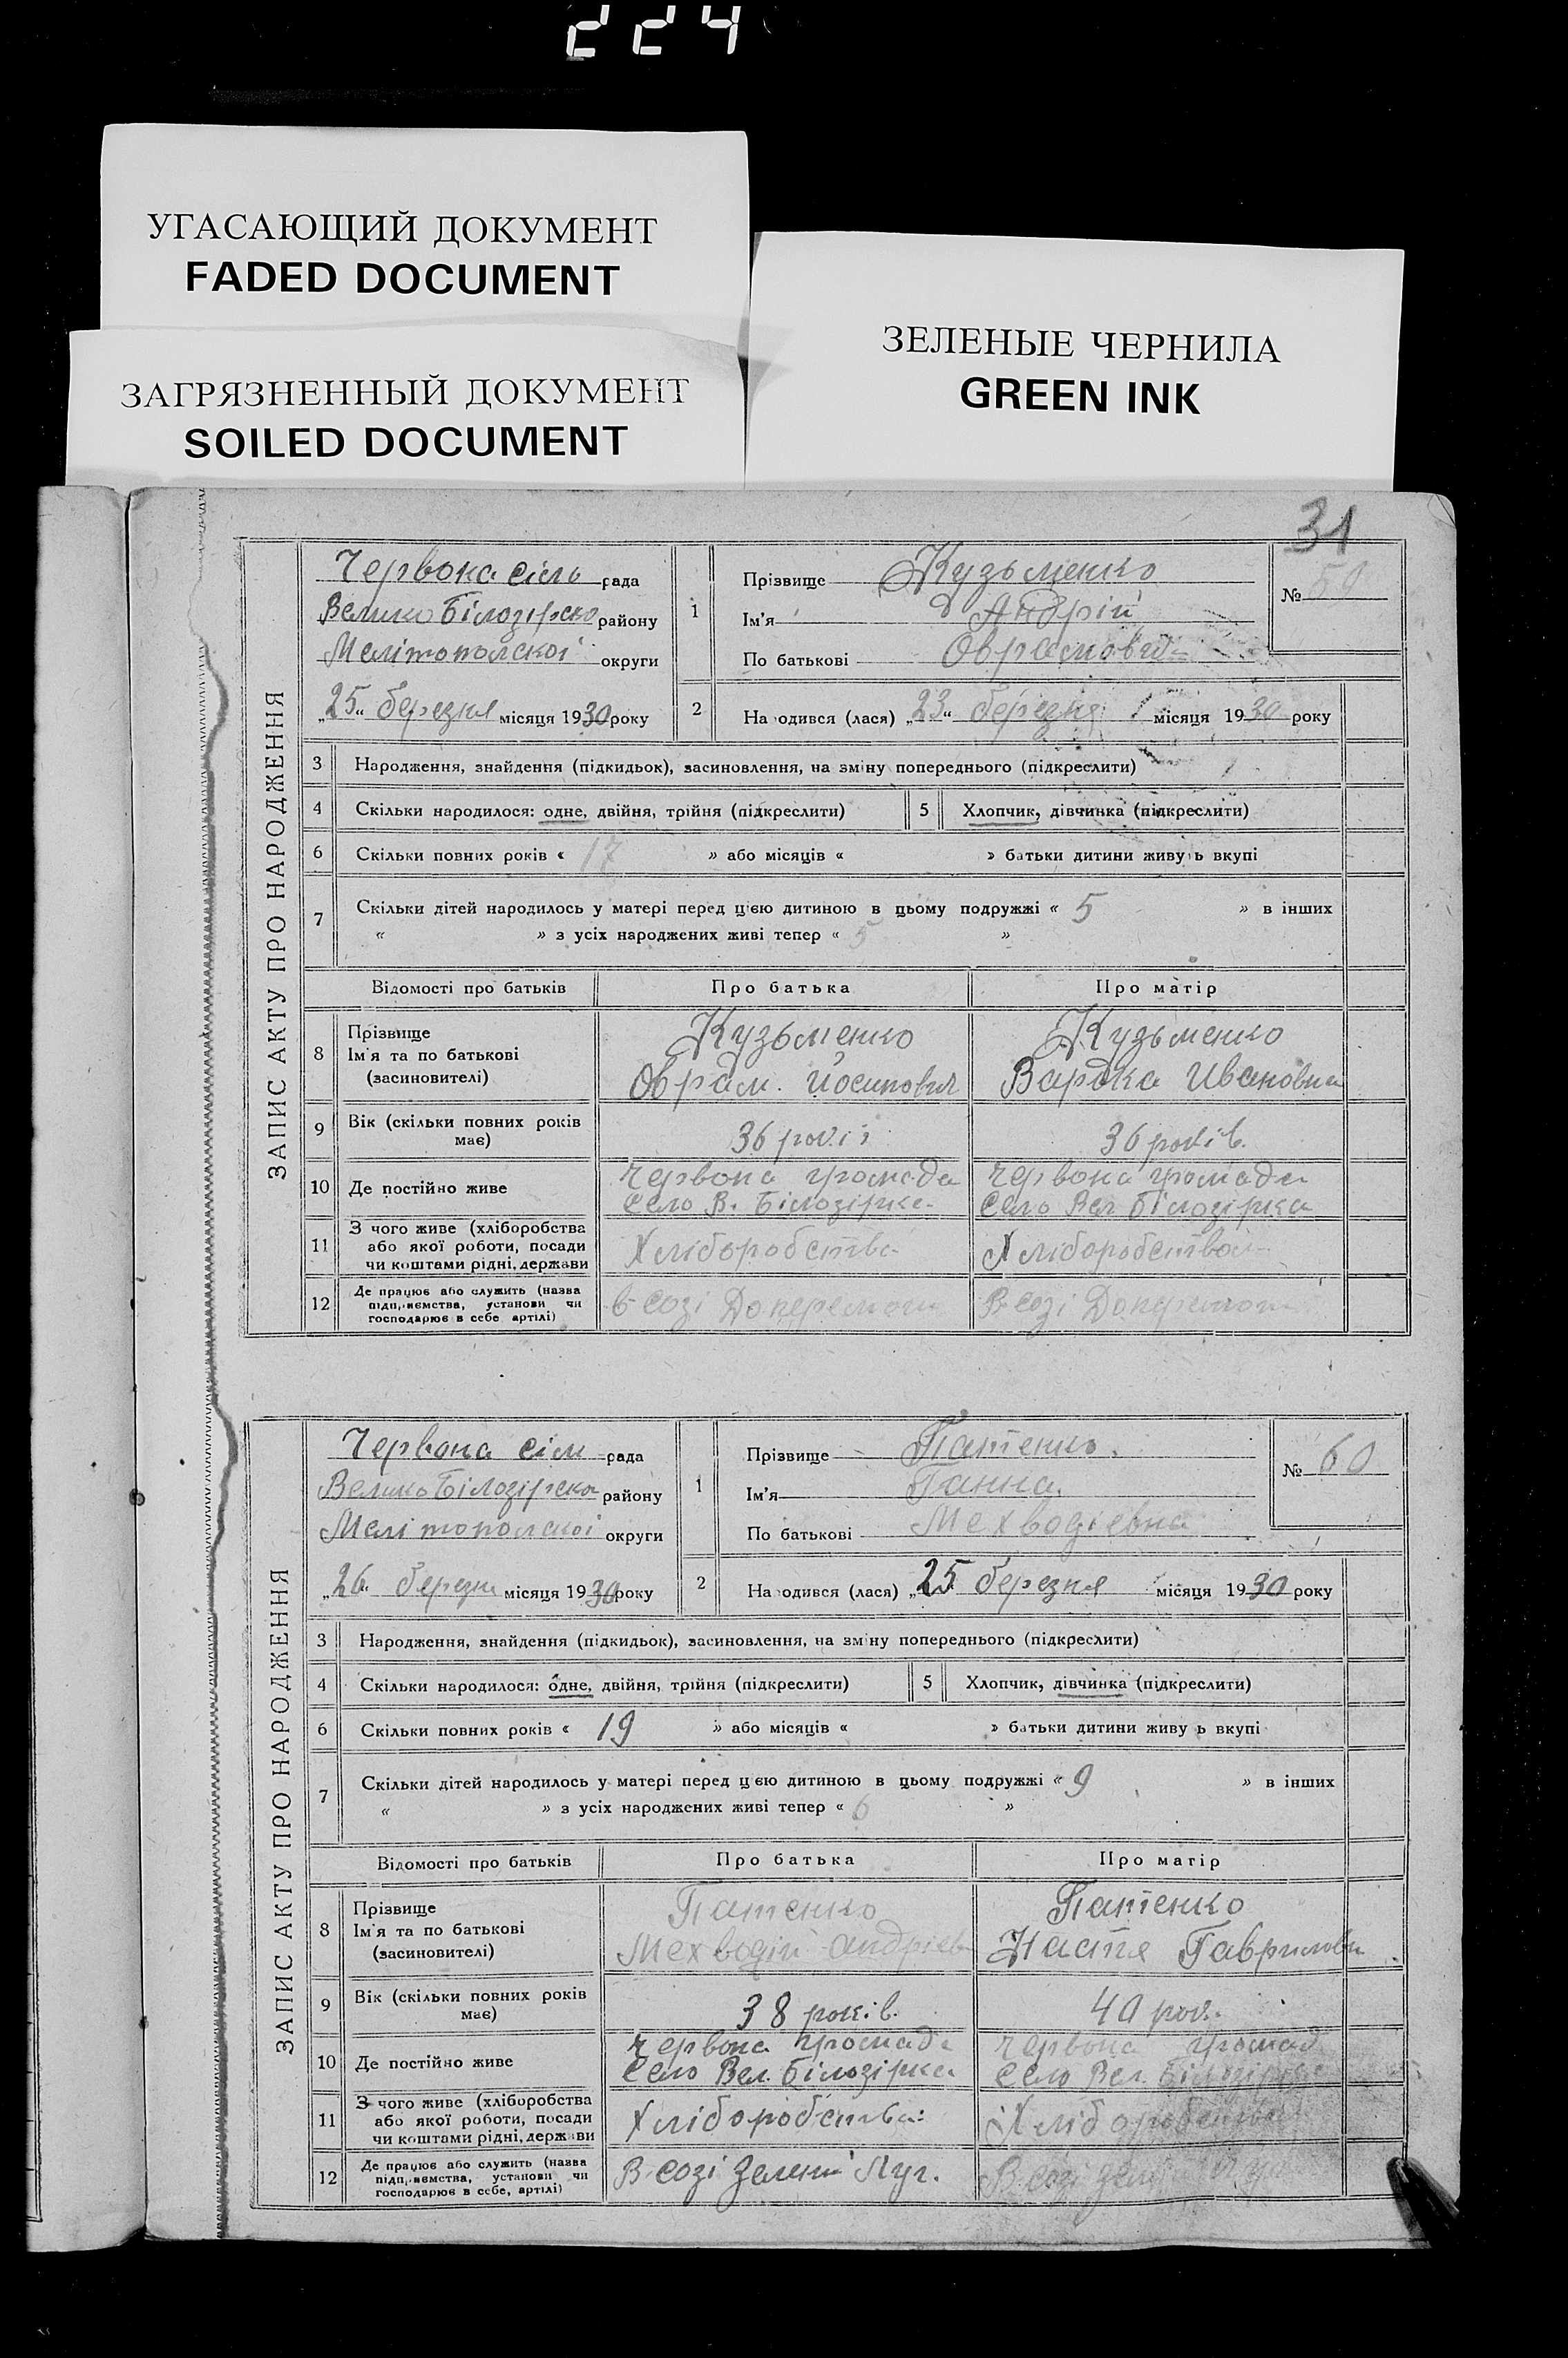 224
УГАСАЮЩИЙ ДОКУМЕНТ
FADED DOCUMENT
ЗАГРЯЗНЕННЫЙ ДОКУМЕНТ
SOILED DOCUMENT
ЗЕЛЕНЫЕ ЧЕРНИЛА
GREEN INK
31
ЗАПИС АКТУ ПРО НАРОДЖЕННЯ
Червона сіль рада
Велико Білозірско району
Мелітополскої округи
„25“ березня місяця 1930 року
1
Прізвище Кузьменко
Ім'я Андрій
По батькові Оврамович
№ 50
2 На одився (лася) „23“ березня місяця 1930 року
3 Народження, знайдення (підкидьок), засиновлення, на зміну попереднього (підкреслити)
4 Скільки народилося: одне, двійня, трійня (підкреслити) 5 Хлопчик, дівчинка (підкреслити)
6 Скільки повних років « 17 » або місяців « » батьки дитини живуть вкупі
7 Скільки дітей народилось у матері перед цією дитиною в цьому подружжі « 5 » в інших
« » з усіх народжених живі тепер « 5 »
Відомості про батьків Про батька Про матір
8 Прізвище
Ім'я та по батькові
(засиновителі)
Кузьменко
Оврам. Йосипович
Кузьменко
Варька Ивановна
9 Вік (скільки повних років
має)
36 років
36 років.
10 Де постійно живе
Червона громада
село В. Білозірка
Червона громада
село Вел Білозірка
11 З чого живе (хліборобства
або якої роботи, посади
чи коштами рідні, держави
Хліборобства
Хліборобства
12 Де працює або служить (назва
підприємства, установи чи
господарює в себе артілі)
В созі
В созі
ЗАПИС АКТУ ПРО НАРОДЖЕННЯ
Червона сіл рада
Велико Білозірско району
Мелітополскої округи
„26“ березня місяця 1930 року
1
Прізвище Патенко.
Ім'я Ганна.
По батькові Мехводіевна
№ 60
2 На одився (лася) „25“ березня місяця 1930 року
3 Народження, знайдення (підкидьок), засиновлення, на зміну попереднього (підкреслити)
4 Скільки народилося: одне, двійня, трійня (підкреслити) 5 Хлопчик, дівчинка (підкреслити)
6 Скільки повних років « 19 » або місяців « » батьки дитини живу ь вкупі
7 Скільки дітей народилось у матері перед цією дитиною в цьому подружжі « 9 » в інших
« » з усіх народжених живі тепер « 6 »
Відомості про батьків Про батька Про матір
8 Прізвище
Ім'я та по батькові
(засиновителі)
Патенко
Мехводій Андріев
Патенко
Настя Гаврилови
9 Вік (скільки повних років
має)
38 років.
40 рок.
10 Де постійно живе
Червона громада
село Вел. Білозірка
Червона громад
село Вел. Білозірка
11 З чого живе (хліборобства
або якої роботи, посади
чи коштами рідні, держави
Хліборобства
Хліборобства
12 Де працює або служить (назва
підприємства, установи чи
господарює в себе, артілі)
В созі Зелений Луг.
В созі